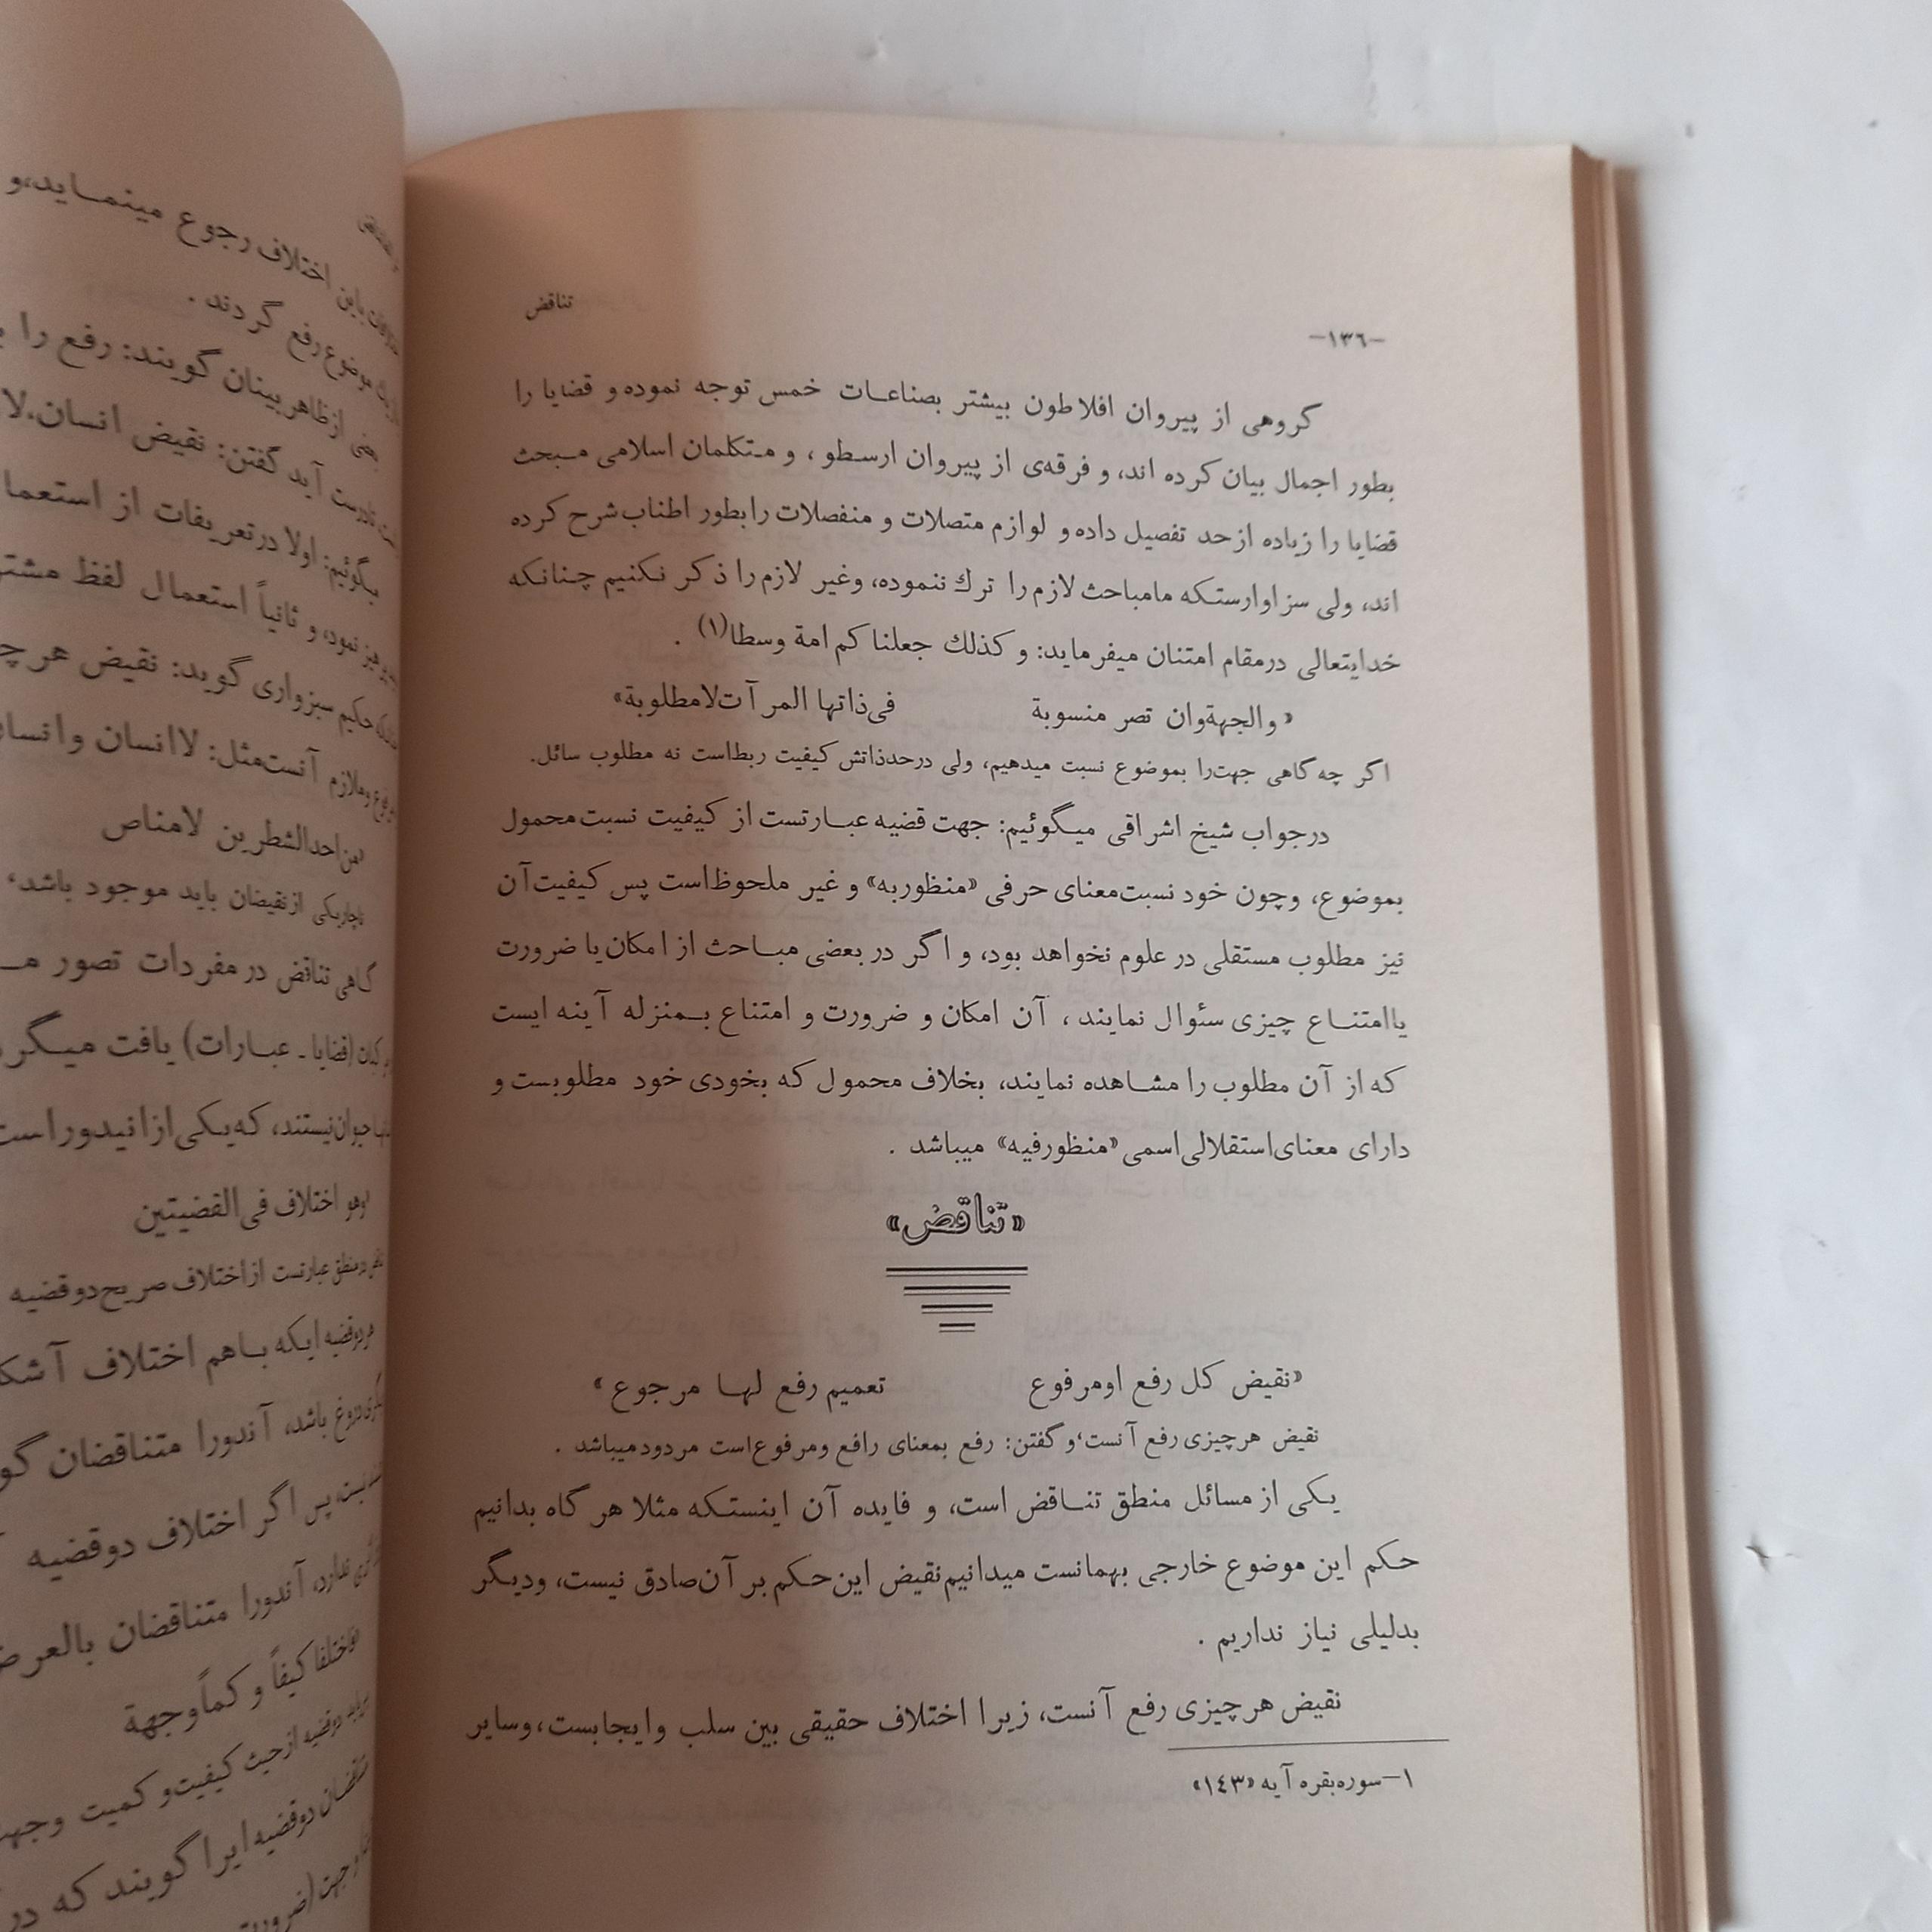 -١٣٦-
تناقض
گروهی از پیروان افلاطون بیشتر بصناعات خمس توجه نموده و قضایا را
بطور اجمال بیان کرده اند، و فرقه‌ی از پیروان ارسطو ، و متکلمان اسلامی مبحث
قضایا را زیاده از حد تفصیل داده و لوازم متصلات و منفصلات را بطور اطناب شرح کرده
اند، ولی سزاوارستکه مامباحث لازم را ترك ننموده، وغیر لازم را ذکر نکنیم چنانکه
خدایتعالی درمقام امتنان میفرماید: و کذلك جعلناکم امة وسطا(١) .
« والجهةوان تصر منسوبة فی‌ذاتها المرآت‌لامطلوبة»
اگر چه گاهی جهت‌را بموضوع نسبت میدهیم، ولی درحدذاتش کیفیت ربطاست نه مطلوب سائل.
درجواب شیخ اشراقی میگوئیم: جهت قضیه عبارتست از کیفیت نسبت محمول
بموضوع، وچون خود نسبت‌معنای حرفی «منظوربه» و غیر ملحوظ‌است پس کیفیت‌آن
نیز مطلوب مستقلی در علوم نخواهد بود، و اگر در بعضی مباحث از امکان یا ضرورت
یاامتناع چیزی سئوال نمایند ، آن امکان و ضرورت و امتناع بمنزله آینه ایست
که از آن مطلوب را مشاهده نمایند، بخلاف محمول که بخودی خود مطلوبست و
دارای معنای‌استقلالی‌اسمی «منظورفیه» میباشد .
«تناقض»
«نقیض کل رفع اومرفوع تعمیم رفع لها مرجوع »
نقیض هرچیزی رفع آنست،و گفتن: رفع بمعنای رافع ومرفوع‌است مردودمیباشد .
یکی از مسائل منطق تناقض است، و فایده آن اینستکه مثلا هر گاه بدانیم
حکم این موضوع خارجی بهمانست میدانیم‌نقیض این‌حکم بر آن‌صادق نیست، ودیگر
بدلیلی نیاز نداریم .
نقیض هرچیزی رفع آنست، زیرا اختلاف حقیقی بین سلب وایجابست، وسایر
١-سوره‌بقره آیه «١٤٣»
اختلاف رجوع مینماید،و
موضوع رفع گردند .
بعضی ازظاهربینان گویند: رفع را
آید گفتن: نقیض انسان،لا
میگوئیم: اولا درتعریفات از استعما
نمود، و ثانیاً استعمال لفظ مشتر
حکیم سبزواری گوید: نقیض هرچ
وملازم آنست‌مثل: لاانسان وانسان
من‌احدالشطرین لامناص
ناچاریکی ازنقیضان باید موجود باشد،
گاهی تناقض در مفردات تصور مـ
(قضایا - عبارات) یافت میگر
نیستند، که‌یکی‌ازاندوراست
وهو اختلاف فی‌القضیتین
منطق عبارتست ازاختلاف صریح دوقضیه
هردوقضیه ایکه باهم اختلاف آشکا
دروغ باشد، آندورا متناقضان گو
پس اگر اختلاف دوقضیه
ندارد، آندورا متناقضان بالعرض
واختلفا کیفاً و کماًوجهة
دوقضیه ازحیث کیفیت‌و کمیت وجهت
دوقضیه‌ایرا گویند که در